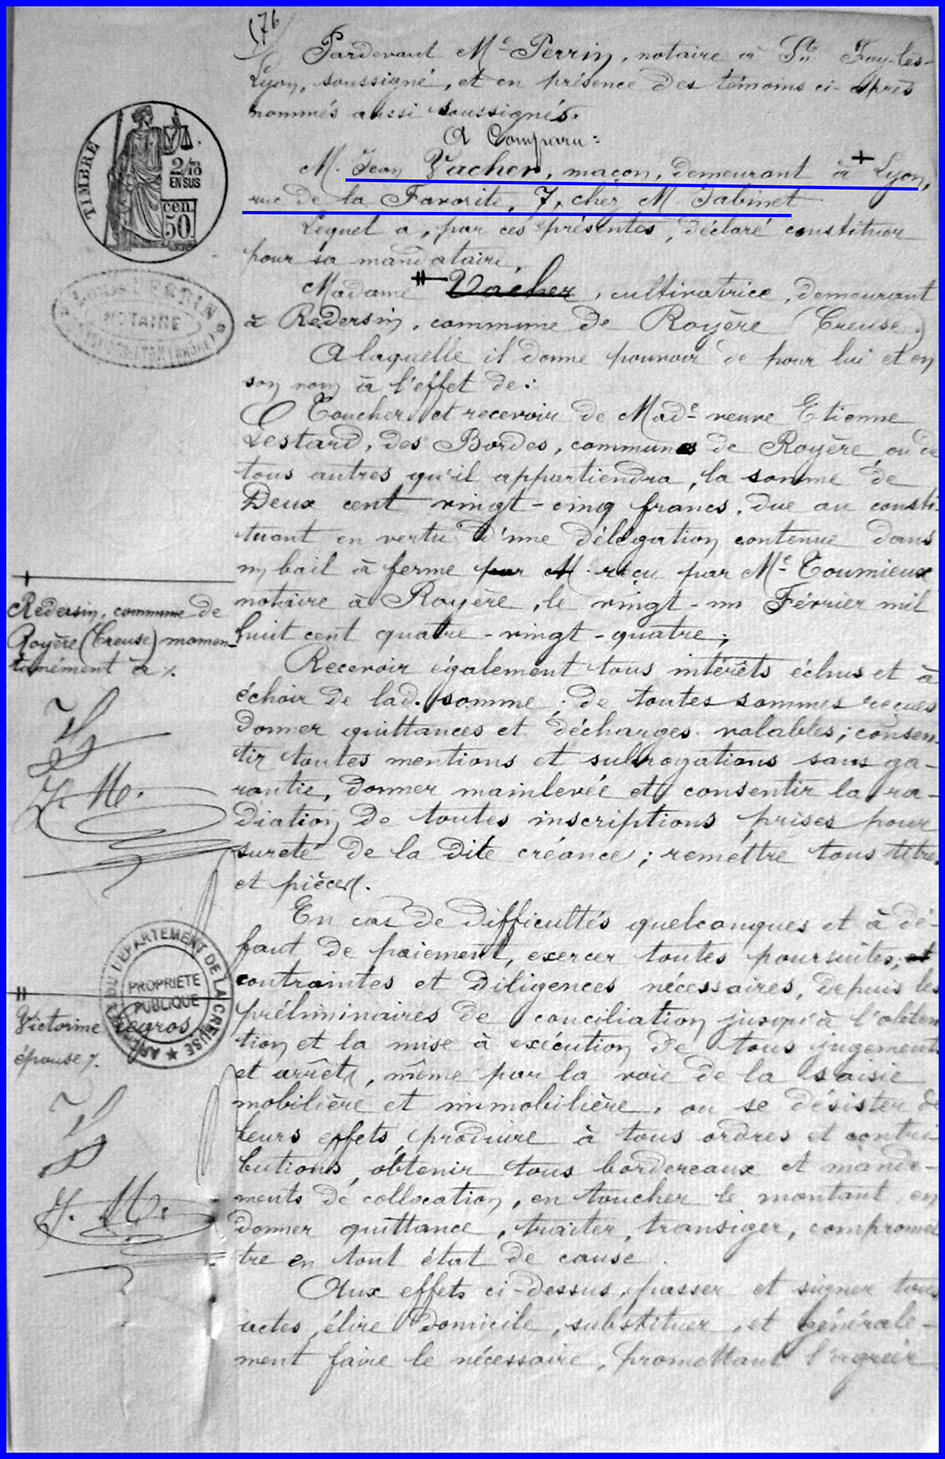 176
Pardevant Me Perrin, notaire à Ste Foy-les-
Lyon, soussigné, et en présence des témoins ci-après
nommés aussi soussignés.
A Comparu:
M. Jean Vacher, maçon, demeurant à + Lyon,
rue de la Favorite, 7, chez M Tabinet
Lequel a, par ces présentes, déclaré constituer
pour sa mandataire,
Madame # Vacher, cultivatrice, demeurant
à Redersin, commune de Royère (Creuse.)
A laquelle il donne pouvoir de pour lui et en
son nom à l'effet de:
Toucher et recevoir de Made veuve Etienne
Lestard, des Bordes, commune de Royère, ou de
tous autres qu'il appartiendra, la somme de
Deux cent vingt-cinq francs, due au consti-
tuant en vertu d'une délégation contenue dans
un bail à ferme par M. reçu par Me Toumieux
notaire à Royère, le vingt-un Février mil
huit cent quatre-vingt-quatre;
Recevoir également tous intérêts échus et à
échoir de lad. somme; de toutes sommes reçues
donner quittances et décharges valables; consen-
tir toutes mentions et subrogations sans ga-
rantie, donner mainlevée et consentir la ra-
diation de toutes inscriptions prises pour
sureté de la dite créance; remettre tous titres
et pièces.
En cas de difficultés quelconques et à dé-
faut de paiement, exercer toutes poursuites, et
contraintes et diligences nécessaires, depuis les
préliminaires de conciliation jusqu'à l'obten
tion et la mise à exécution de tous jugements
et arrêts, même par la voie de la saisie
mobilière et immobilière, ou se désister de
leurs effets, produire à tous ordres et contri
butions, obtenir tous bordereaux et mande-
ments de collocation, en toucher le montant, en
donner quittance, traiter, transiger, compromet
tre en tout état de cause.
Aux effets ci-dessus, passer et signer tous
actes, élire domicile, substituer, et générale-
ment faire le nécessaire, promettant l'agréer
TIMBRE
2/10
EN SUS
cen.
50
PERRIN
NOTAIRE
+
Redersin, commune de
Royère (Creuse) momen-
tanément à
J. M.
DU DÉPARTEMENT DE LA CREUSE
PROPRIÉTÉ
PUBLIQUE
#
Victorine Legros
épouse
J. M.